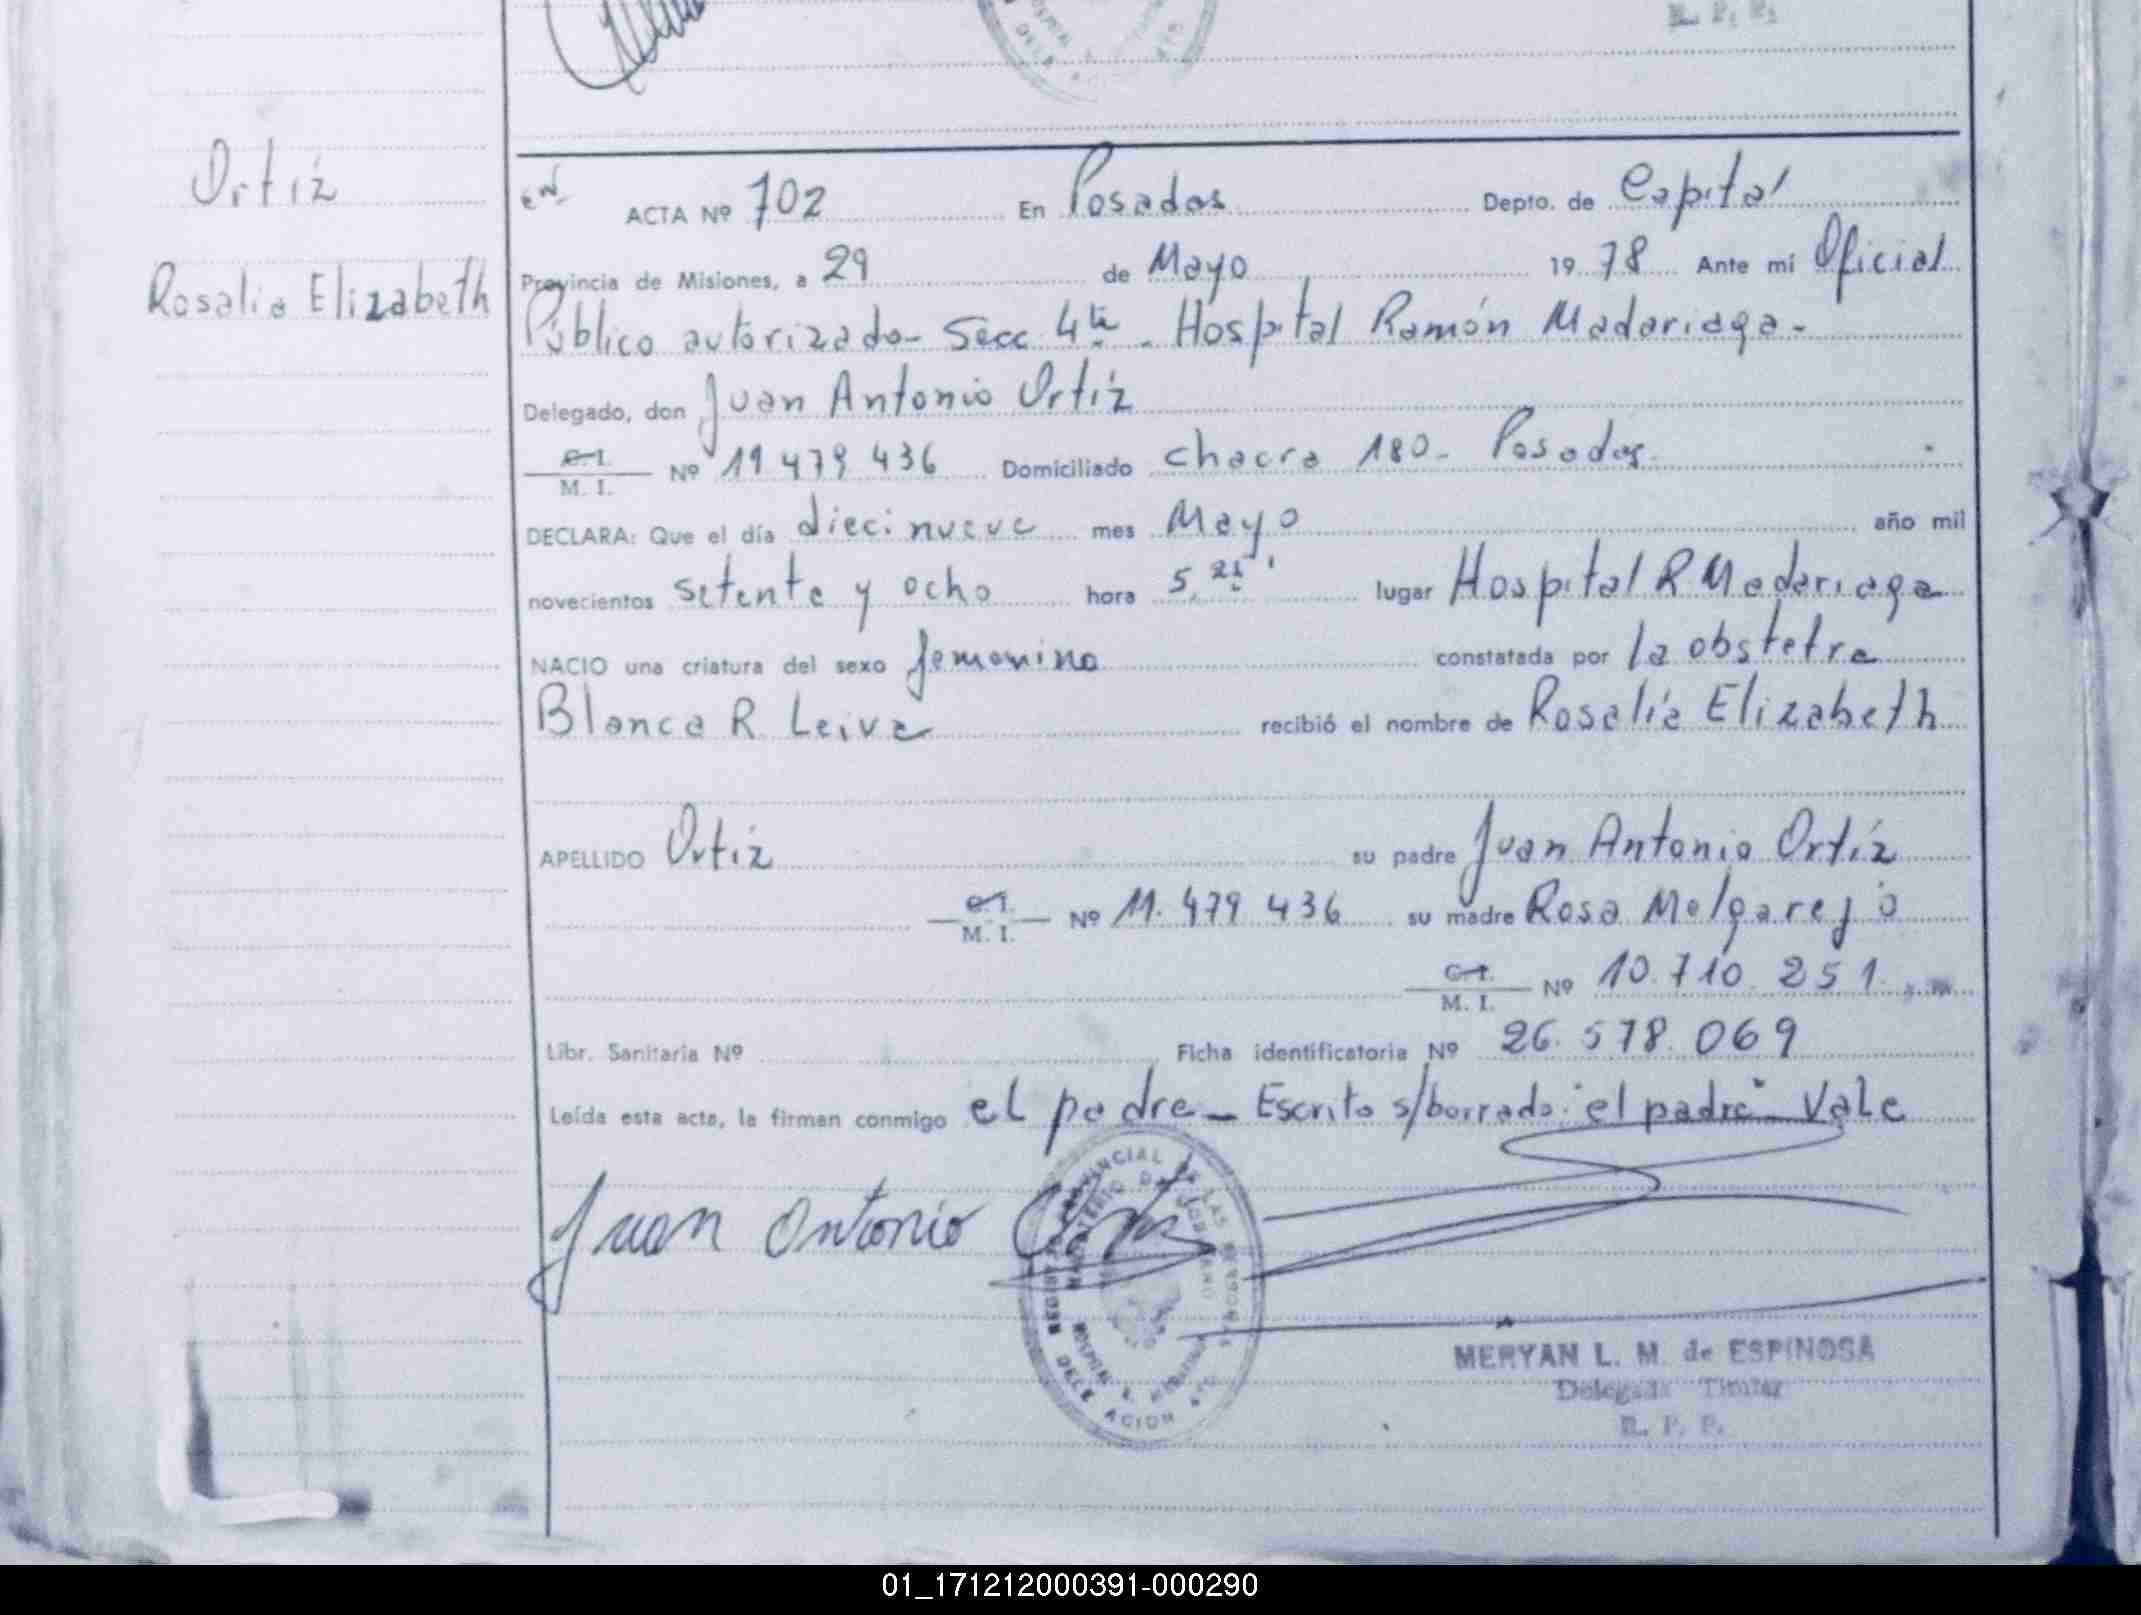 R. P. P.
Ortíz
Rosalia Elizabeth
ACTA Nº 702 En Posadas Depto. de Capital
Provincia de Misiones, a 29 de Mayo 1978 Ante mí Oficial
Público autorizado - Secc 4ta - Hospital Ramón Madariaga -
Delegado, don Juan Antonio Ortíz
C. I. M. I. Nº 11 479 436 Domiciliado chacra 180 - Posadas
DECLARA: Que el día diecinueve mes Mayo año mil
novecientos setenta y ocho hora 5,25' lugar Hospital R Madariaga
NACIO una criatura del sexo femenino constatada por la obstetra
Blanca R Leiva recibió el nombre de Rosalía Elizabeth
APELLIDO Ortíz su padre Juan Antonio Ortíz
C. I. M. I. Nº 11. 479 436 su madre Rosa Melgarejo
C. I. M. I. Nº 10. 710. 251.
Libr. Sanitaria Nº Ficha identificatoria Nº 26. 578. 069
Leída esta acta, la firman conmigo el padre - Escrito s/borrado: "el padre" - Vale
Juan Antonio Ortiz
MERYAN L. M. de ESPINOSA
Delegada Titular
R. P. P.
01_171212000391-000290